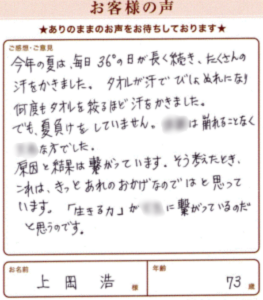 お客様の声
★ありのままのお声をお待ちしております★
ご感想・ご意見
今年の夏は、毎日36°の日が長く続き、たくさんの
汗をかきました。タオルが汗でびしょぬれになり
何度もタオルを絞るほど汗をかきました。
でも、夏負けをしていません。は崩れることなく
な方でした。
原因と結果は繋がっています。そう考えたとき、
これは、きっとあれのおかげなのではと思って
います。「生きる力」がに繋がっているのだ
と思うのです。
お名前
上岡 浩 様
年齢
73 歳